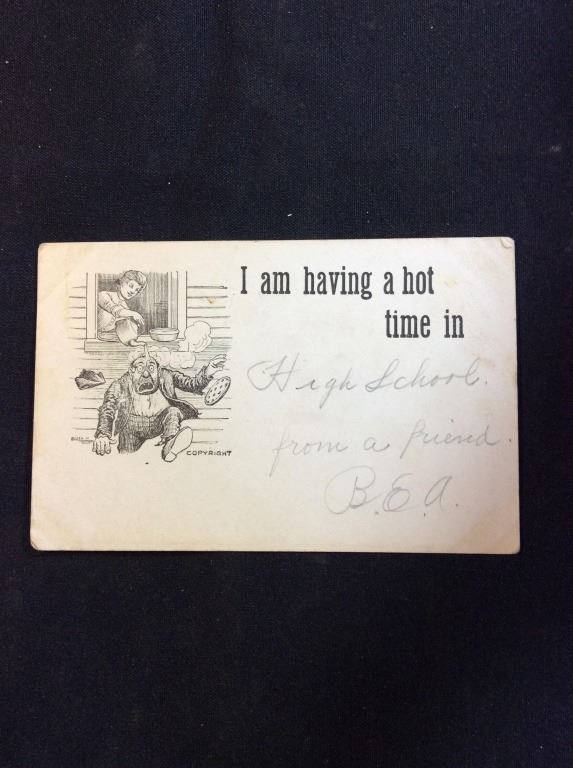 I am having a hot
time in
High School.
from a friend.
B.E.A.
COPYRIGHT